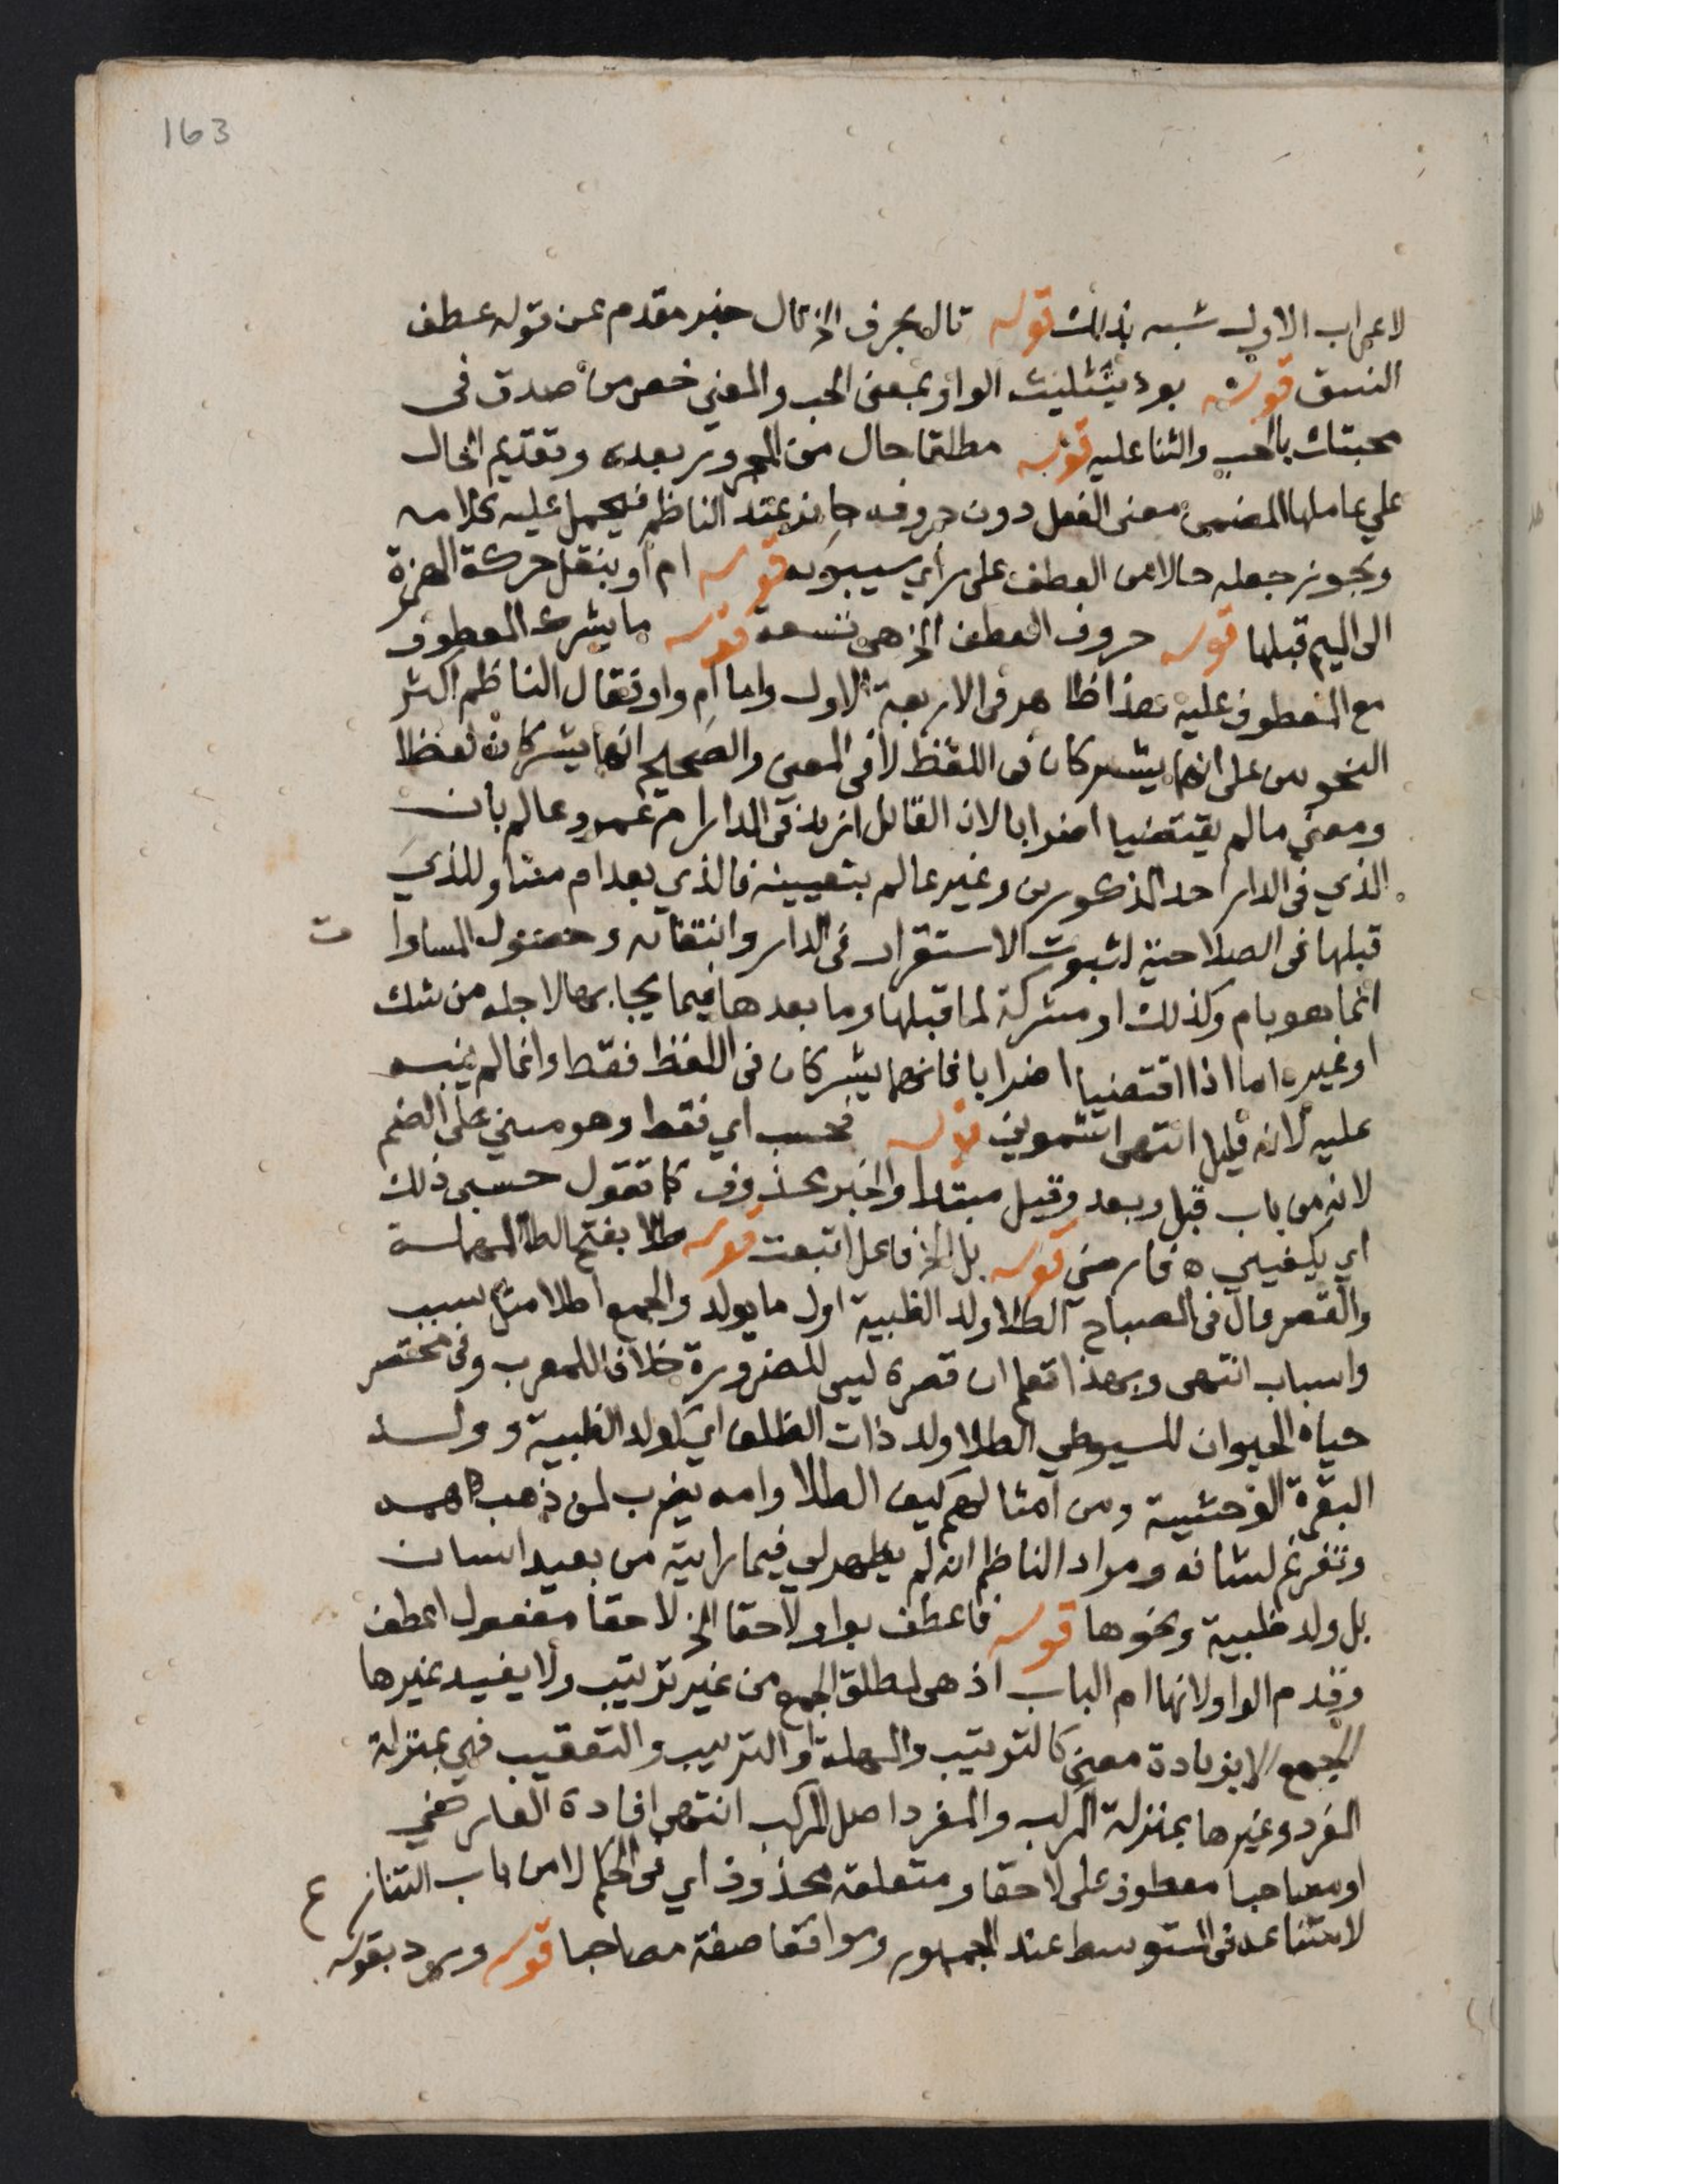 163
لاعراب الاول شبه بذلك قوله تال بحرف الخ تال خبر مقدم عن قوله عطف
النسق قوله بود بتثليث الواو بمعنى الحب والمعني خص من صدق فى
محبتك بالحب والثنا عليه قوله مطلقا حال من المجرور بعده وتقديم الحال
علي عاملها المضمن معنى الفعل دون حروفه جايز عند الناظم فيحمل عليه كلامه
ويجوز جعله حالا من العطف على راي سيبويه قوله ام او بنقل حركة الهمزة
الى الميم قبلها قوله حروف العطف الخ هى تسعة قوله ما يشرك المعطوف
مع المعطوف عليه هذا ظاهر فى الاربعة الاول واما ام واو فقال الناظم اكثر
النحويين على انهما يشركان فى اللفظ لا فى المعنى والصحيح انهما يشركان لفظا
ومعنى ما لم يقتضيا اضرابا لان القائل ازيد فى الدار ام عمرو عالم بان
الذي فى الدار احد المذكورين وغير عالم بتعيينه فالذي بعد ام مساو للذي
قبلها فى الصلاحية لثبوت الاستقرار فى الدار وانتفائه وحصول المساوا ت
انما هو بام وكذلك او مشركة لما قبلها وما بعدها فيما يجا بها لاجله من شك
او غيره اما اذا اقتضيا اضرابا فانهما يشركان فى اللفظ فقط وانما لم ينبه
عليه لانه قليل انتهى اشموني قوله فحسب اي فقط وهو مبني على الضم
لانه من باب قبل وبعد وقيل مبتدا والخبر محذوف كما تقول حسبى ذلك
اي يكفيني ه فارضي قوله بل الخ فاعل اتبعت قوله طلا بفتح الطا المهملة
والقصر قال فى المصباح الطلا ولد الظبية اول ما يولد والجمع اطلا مثل سبب
واسباب انتهى وبهذا تعلم ان قصره ليس للضرورة خلافا للمعرب وفى مختصر
حياة الحيوان للسيوطي الطلا ولد ذات الظلف اي كولد الظبية وولد
البقرة الوحشية ومن امثالهم كيف الطلا وامه يضرب لمن ذهب همه
وتفرغ لشانه ومراد الناظم انه لم يظهر لي فيما رايته من بعيد انسان
بل ولد ظبية ونحوها قوله فاعطف بواو لاحقا الخ لاحقا مفعول اعطف
وقدم الواو لانها ام الباب اذ هى لمطلق الجمع من غير ترتيب ولا يفيد غيرها
الجمع الا بزيادة معنى كالترتيب والمهلة او الترتيب والتعقيب فهي بمنزلة
المفرد وغيرها بمنزلة المركب والمفرد اصل المركب انتهى افادة الفارضي
او مصاحبا معطوف على لاحقا ومتعلقه محذوف اي فى الحكم لا من باب التناز ع
لامتناعه فى المتوسط عند الجمهور وموافقا صفة مصاحبا قوله ويرد بقوله